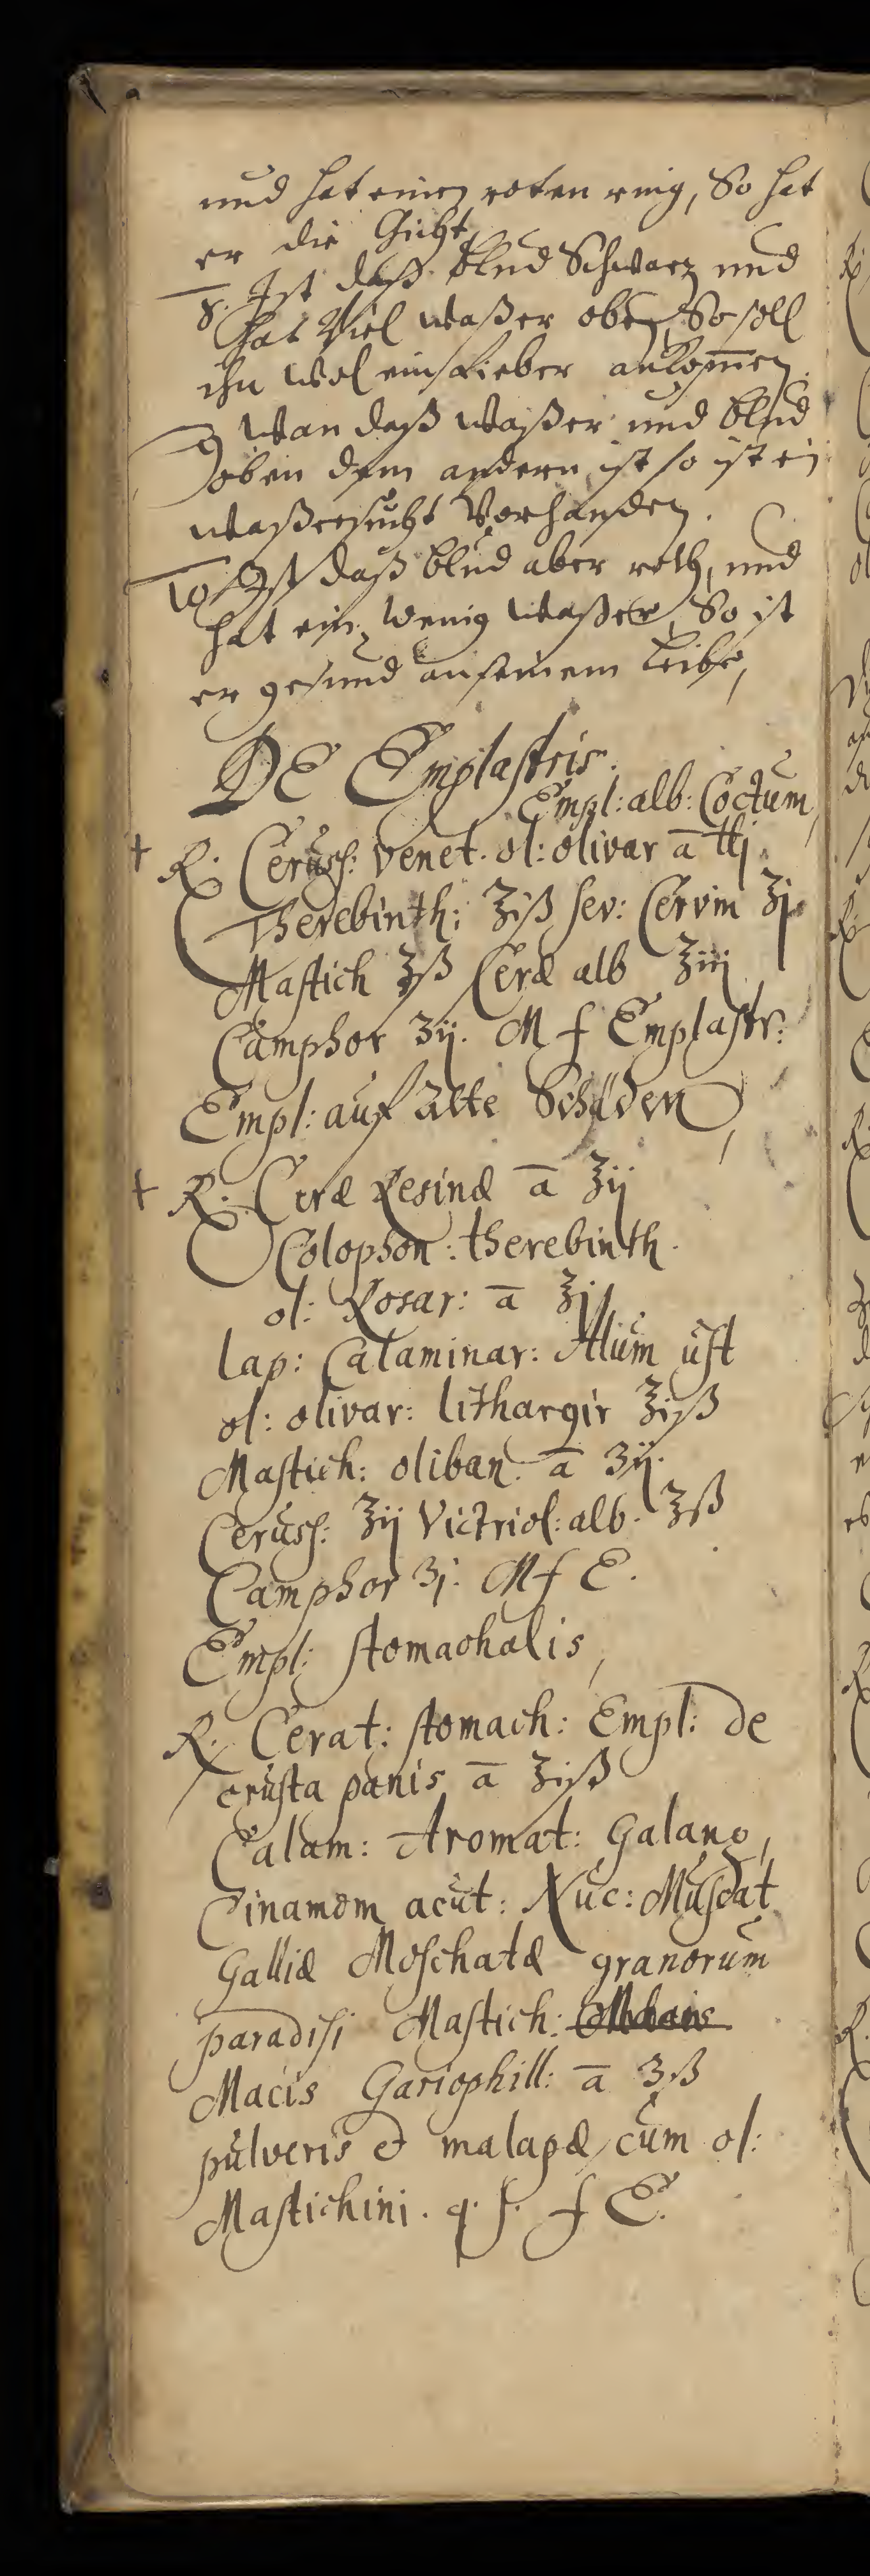 und hat einen roten ring, So hat
er die Gicht,
8. Ist daß blud Schwarz und
hat Viel waßer oben, So soll
ihn wol ein Fieber ankom̄en.
9 Wan daß waßer und blud
oben dem andern ist so ist ein
waßersucht Vorhanden.
10 Ist daß blud aber roth, und
hat ein wenig waßer, So ist
er gesund an seinem Leibe,
DE Emplastris.
Empl: alb: Coctum,
+ R. Ceruss: venet. ol: olivar ā ℔j.
Therebinth: ℥iß sev: Cervin ℥j
Mastich ℥ß Ceræ alb ℥iij
Camphor ʒij. M f Emplastr:
Empl: auf alte Schäden,
+ R. Ceræ Resinæ ā ℥ij
Colophon: therebinth.
ol: Rosar: ā ℥j
lap: Calaminar: Alum ust
ol: olivar: lithargir ℥iß
Mastich: oliban. ā ʒij.
Ceruss: ℥ij Victriol: alb. ℥ß
Camphor ʒj. M f E.
Empl: stomachalis,
R. Cerat: stomach: Empl: de
crusta panis ā ℥iß
Calam: Aromat: Galang,
Cinamom acut: Nuc: Muscat
Galliæ Moschatæ granorum
paradisi Mastich:
Macis Gariophill: ā ʒß
pulveris et malapæ cum ol:
Mastichini. q. s. f E.